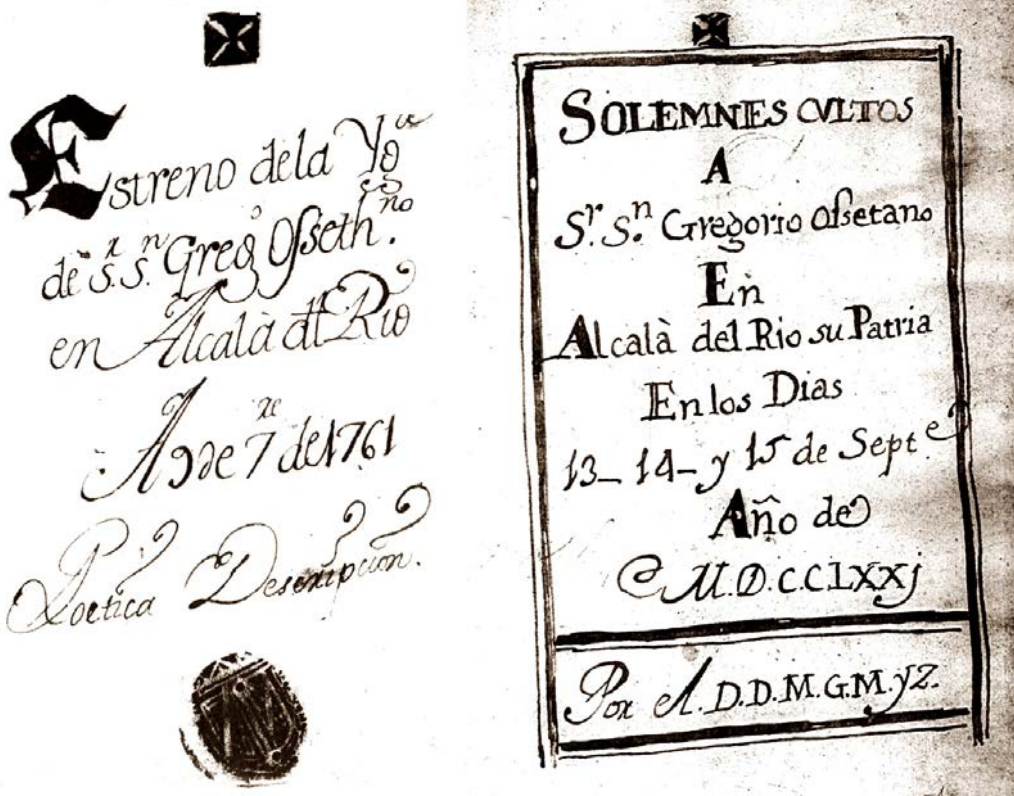 Estreno dela Yg.ª
de S.r S.n Greg.o Osseth.no
en Alcalà dl Rio
A 9 de 7.re de 1761
Poetica Descripcion.
SOLEMNES CVLTOS
A
S.r S.n Gregorio Ossetano
En
Alcalà del Rio su Patria
En los Dias
13_ 14_ y 15 de Sept.e
Año de
M.D.C.CLXXj
Por el. D.D.M.G.M.yz.